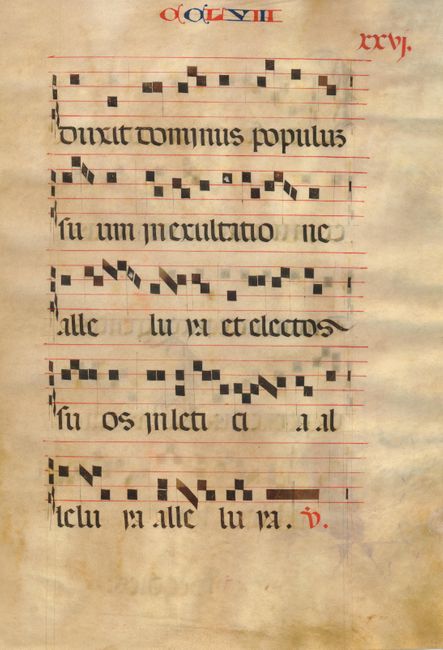 CCLVIII
xxvj.
duxit dominus populuz
su um in exultatio ne
alle lu ya et electos
su os in leti ci a al
lelu ya alle lu ya. V.